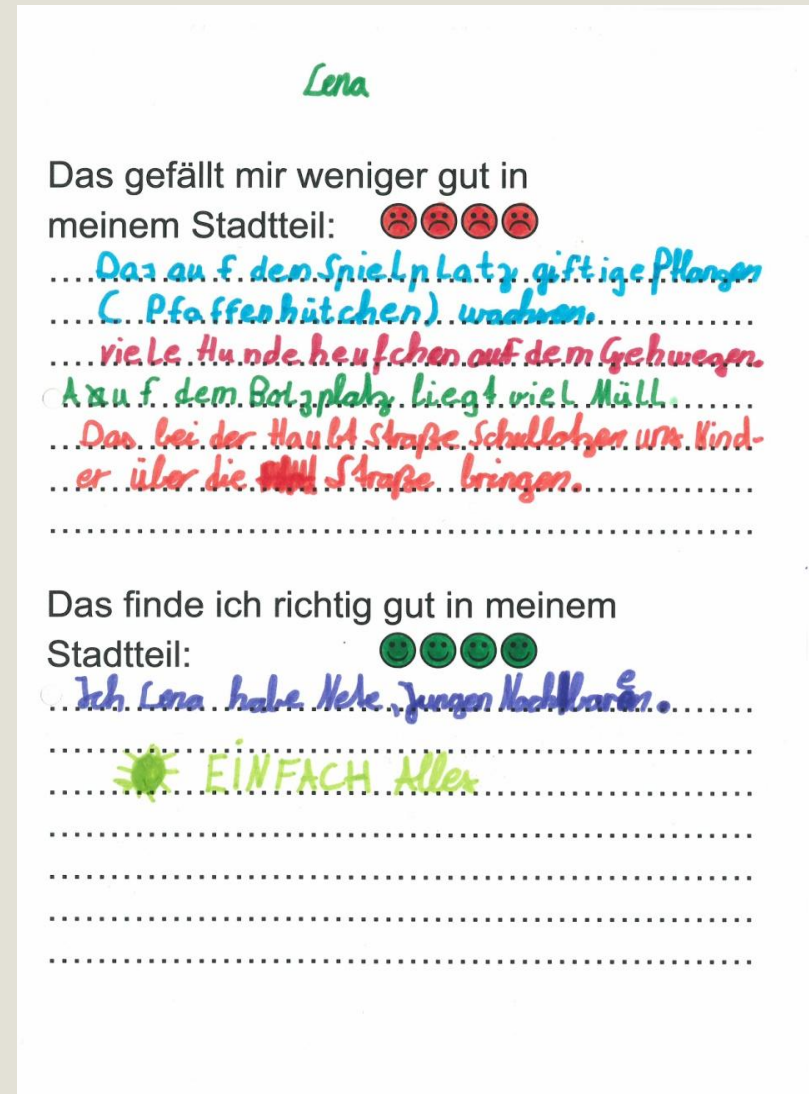 Lena
Das gefällt mir weniger gut in
meinem Stadtteil:
Das au f dem Spielplatz giftige Pflanzen
( Pfaffenhütchen) wachsen.
viele Hunde heufchen auf dem Gehwegen.
Auf dem Bolzplatz liegt viel Müll.
Das bei der Haubt Straße Schullotzen uns Kind-
er über die Straße bringen.
Das finde ich richtig gut in meinem
Stadtteil:
Ich Lena habe Nete, Jungen Nachbaren.
EINFACH Alles